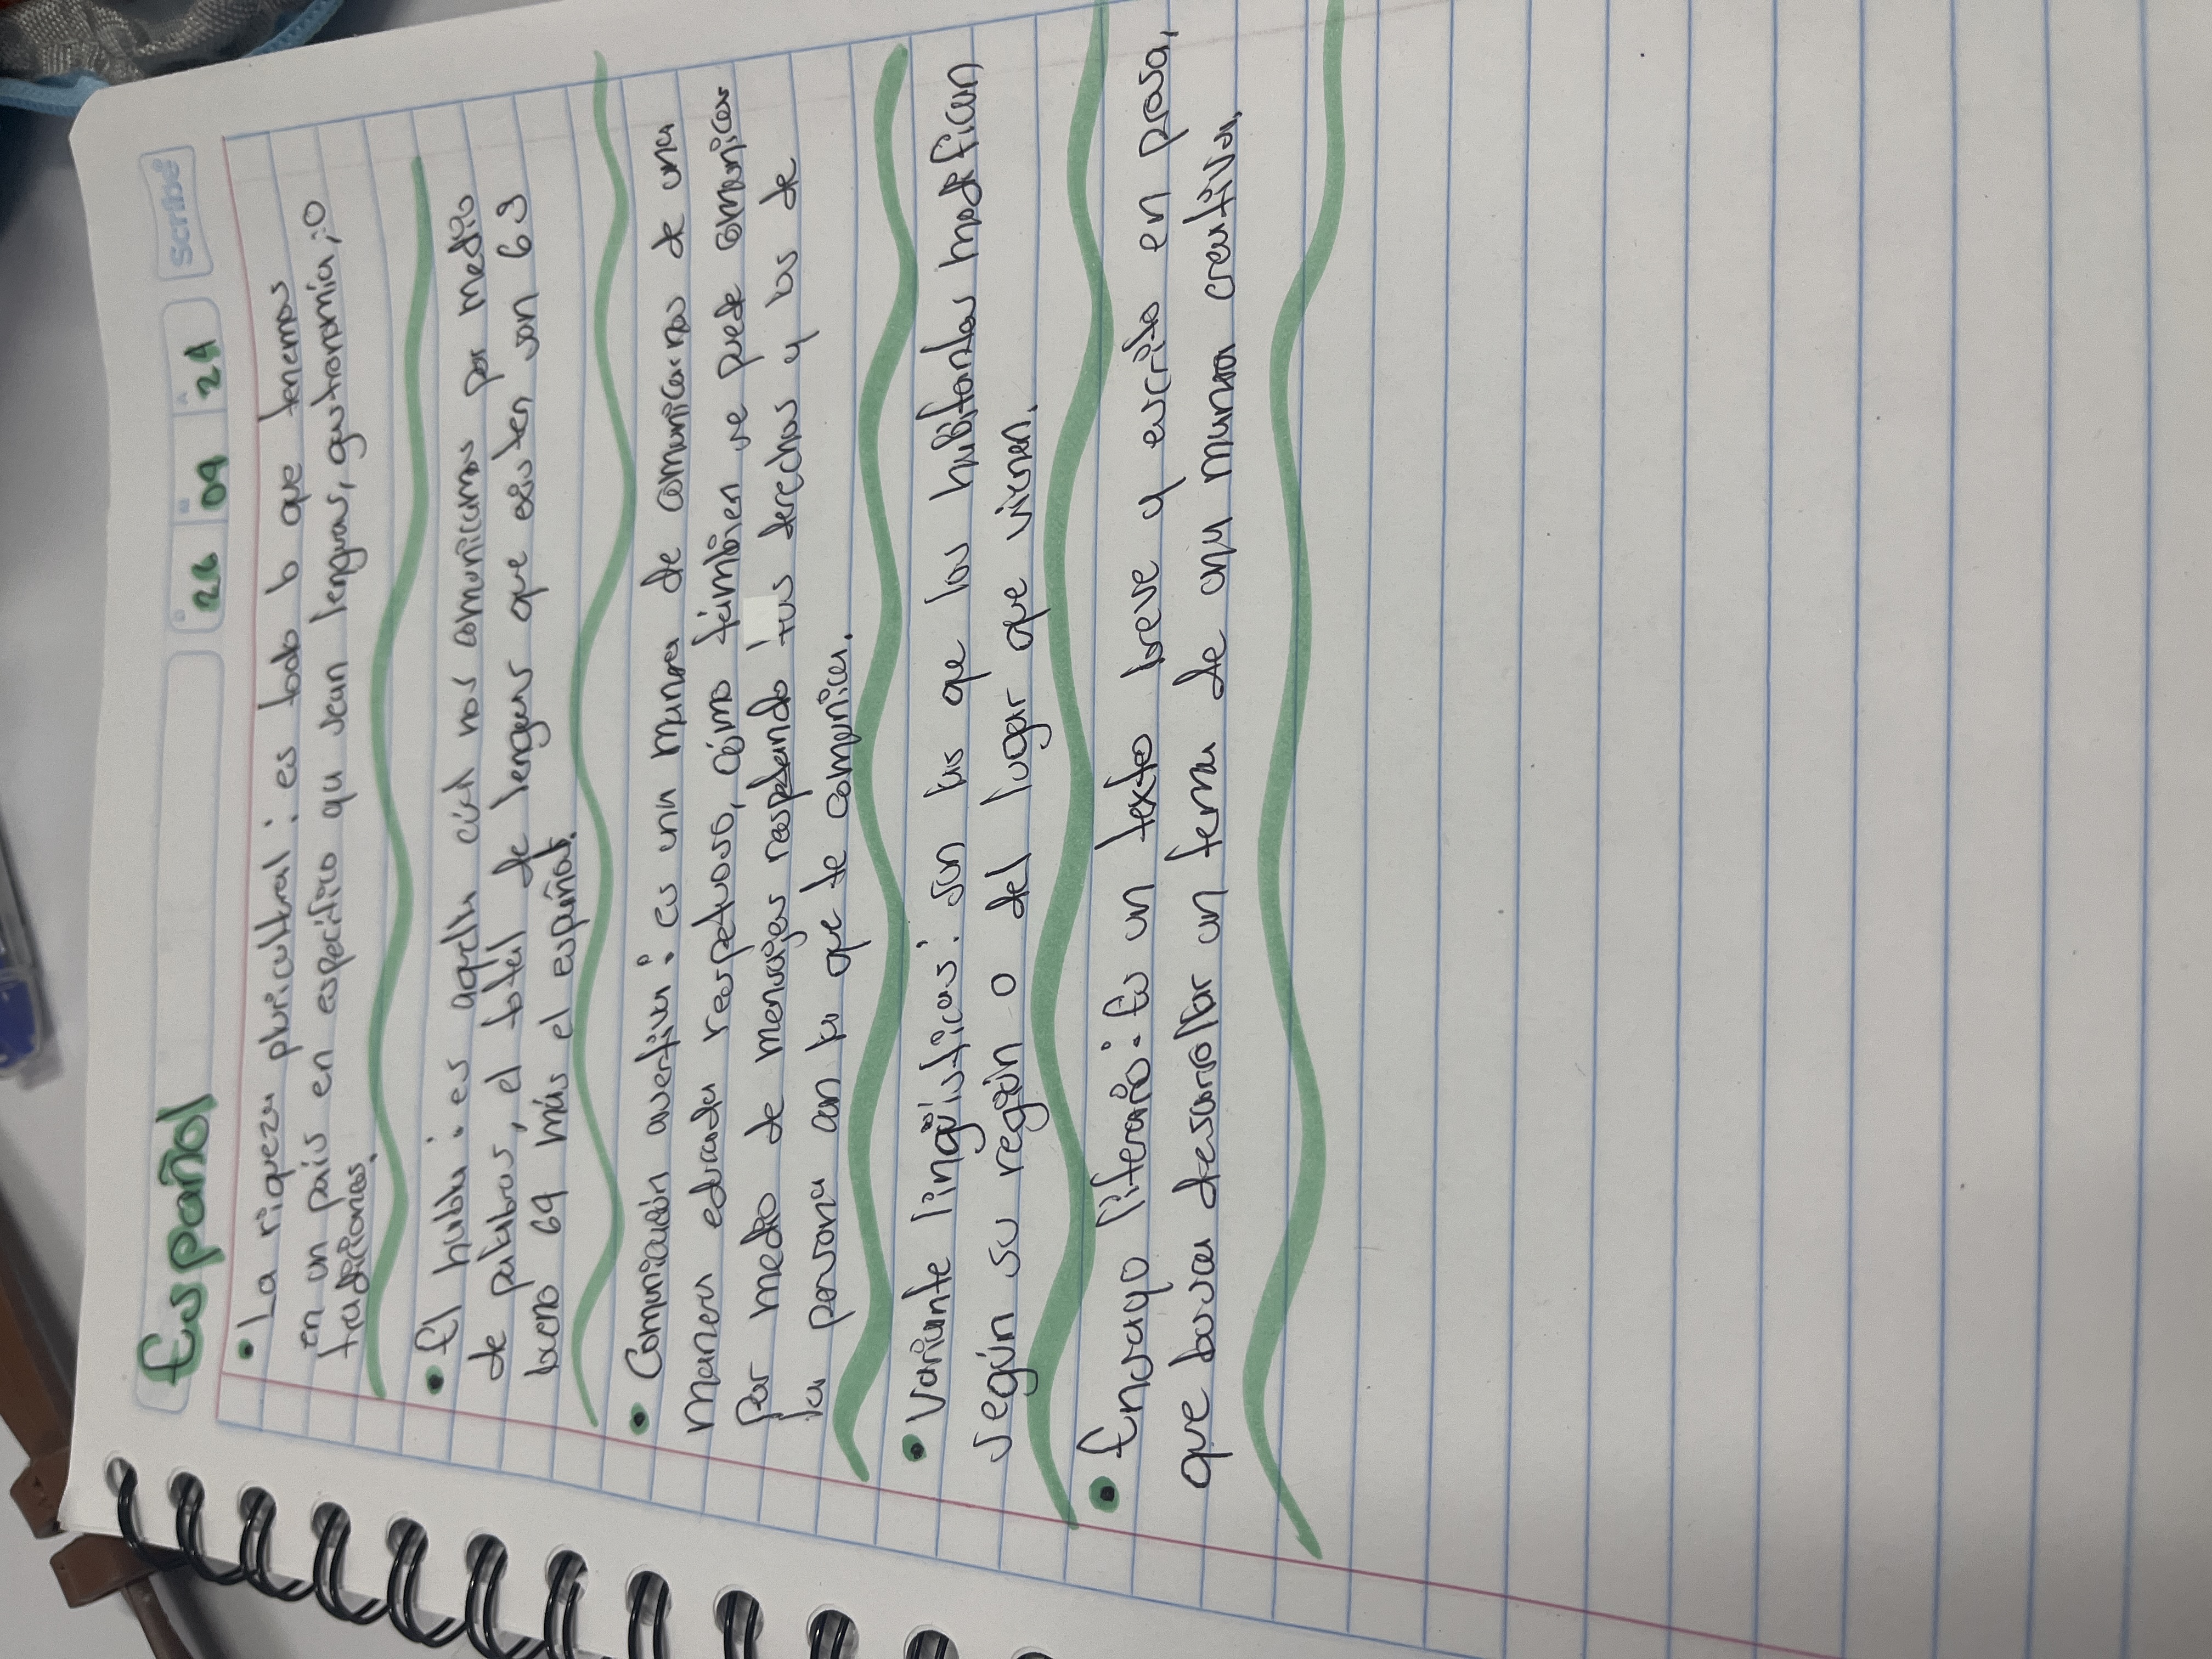 Español
26 09 24
scribe
• La riqueza pluricultural: es todo lo que tenemos
en un país en específico ya sean lenguas, gastronomía, o
tradiciones.
• El habla: es aquella cúal nos comunicamos por medio
de palabras, el total de lenguas que existen son 69
bueno 69 más el español.
• Comunicación asertiva: es una manera de comunicarnos de una
manera educada respetuoso, cómo también se puede comunicar
por medio de mensajes respetando tus derechos y los de
la persona con la que te comunica.
• Variante lingüísticas: son las que los habitantes modifican
según su región o del lugar que vienen.
• Ensayo literario: Es un texto breve y escrito en prosa,
que busca desarrollar un tema de una munera creativa.